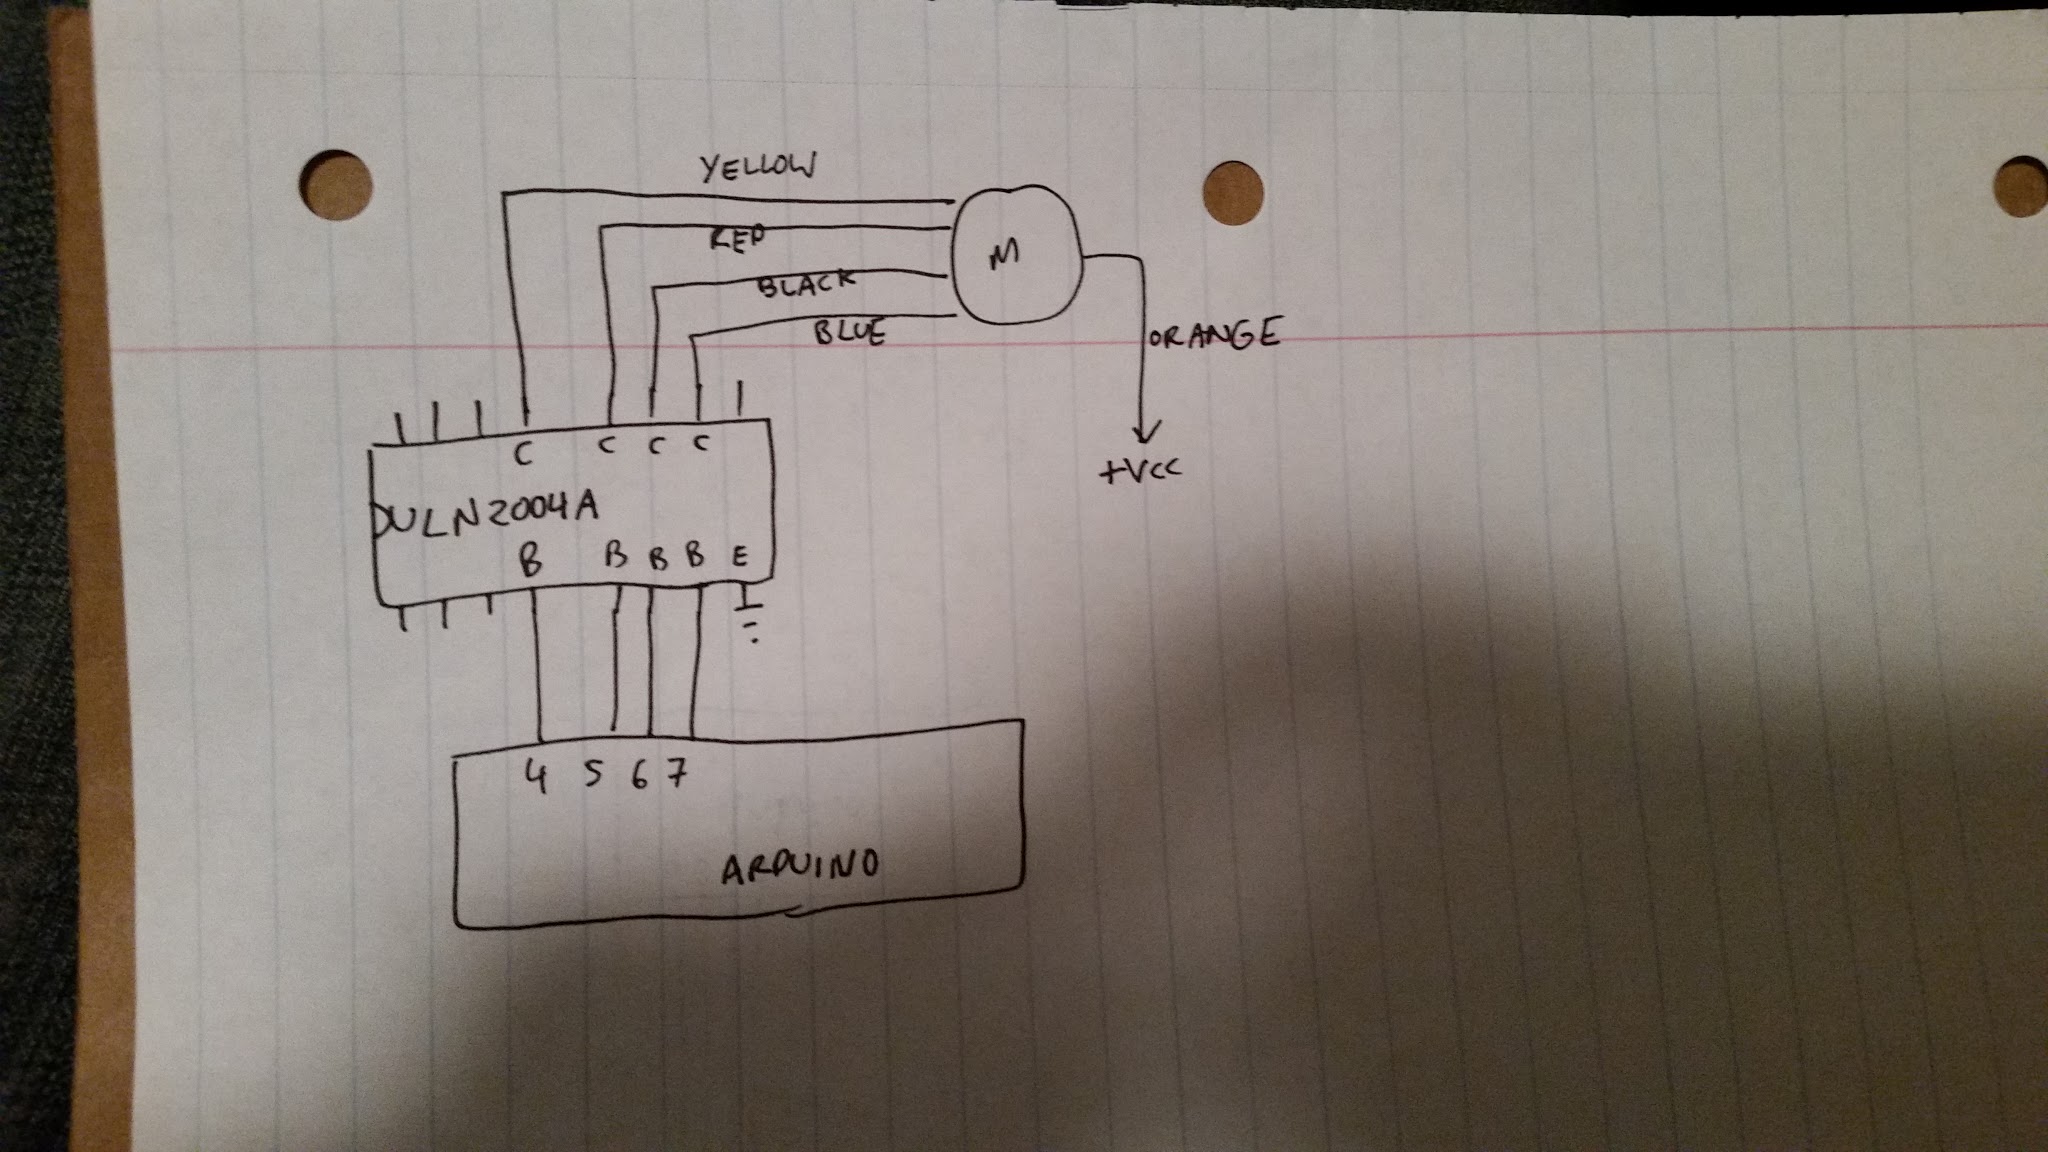 YELLOW
RED
BLACK
BLUE
ORANGE
+VCC
C C C C
ULN2004A
B B B B E
4 5 6 7
ARDUINO
M